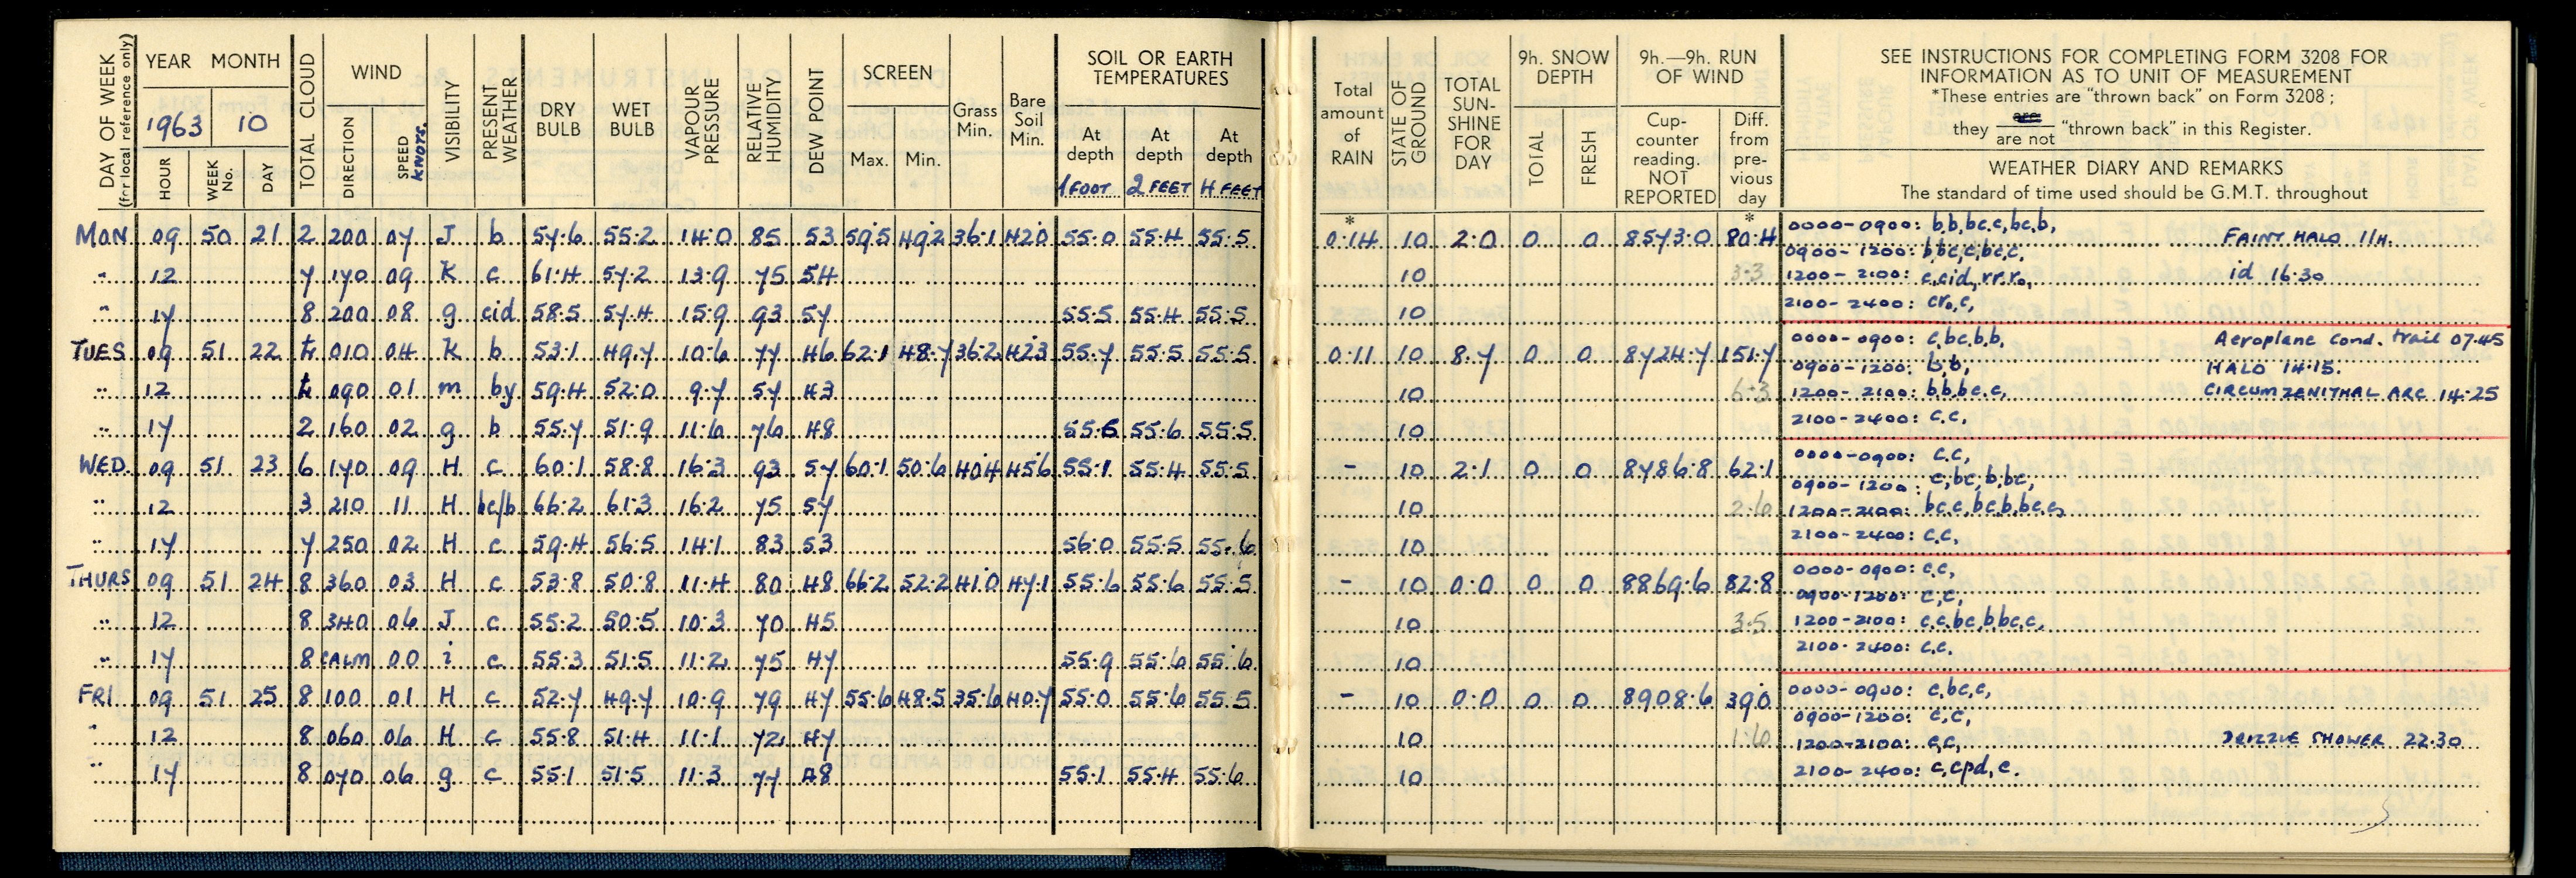 DAY OF WEEK (for local reference only)
YEAR MONTH
1963 10
HOUR WEEK No. DAY
TOTAL CLOUD
WIND
DIRECTION SPEED KNOTS.
VISIBILITY
PRESENT WEATHER
DRY BULB WET BULB
VAPOUR PRESSURE
RELATIVE HUMIDITY
DEW POINT
SCREEN
Max. Min.
Grass Min.
Bare Soil Min.
SOIL OR EARTH TEMPERATURES
At depth 1 FOOT At depth 2 FEET At depth 4 FEET
Total amount of RAIN
STATE OF GROUND
TOTAL SUN-SHINE FOR DAY
9h. SNOW DEPTH
TOTAL FRESH
9h.—9h. RUN OF WIND
Cup-counter reading. NOT REPORTED
Diff. from pre-vious day
SEE INSTRUCTIONS FOR COMPLETING FORM 3208 FOR
INFORMATION AS TO UNIT OF MEASUREMENT
*These entries are "thrown back" on Form 3208;
they are / are not "thrown back" in this Register.
WEATHER DIARY AND REMARKS
The standard of time used should be G.M.T. throughout
MON 09 50 21 2 200 07 J b 57.6 55.2 14.0 85 53 59.5 49.2 36.1 42.0 55.0 55.4 55.5 * 0.14 10 2.0 0 0 8573.0 * 80.4 0000-0900: b,b,bc.c,bc,b, FAINT HALO 114.
0900-1200: b,bc,c,bc,c,
" 12 7 170 09 K c 61.4 57.2 13.9 75 54 10 3.3 1200-2100: c,cid,rr.r₀, id 16.30
" 17 8 200 08 g cid 58.5 57.4 15.9 93 57 55.5 55.4 55.5 10 2100-2400: cr₀,c,
TUES 09 51 22 t 010 04 K b 53.1 49.7 10.6 77 46 62.1 48.7 36.2 42.3 55.7 55.5 55.5 0.11 10 8.7 0 0 8724.7 151.7 0000-0900: c,bc,b,b, Aeroplane Cond. trail 07.45
0900-1200: b,b, HALO 14.15.
" 12 t 090 01 m by 59.4 52.0 9.7 57 43 10 6.3 1200-2100: b,b,bc.c, CIRCUMZENITHAL ARC 14.25
" 17 2 160 02 g b 55.7 51.9 11.6 76 48 55.6 55.6 55.5 10 2100-2400: c.c,
WED. 09 51 23 6 170 09 H c 60.1 58.8 16.3 93 57 60.1 50.6 40.4 45.6 55.1 55.4 55.5 - 10 2.1 0 0 8786.8 62.1 0000-0900: c.c,
0900-1200: c,bc,b,bc,
" 12 3 210 11 H bc/b 66.2 61.3 16.2 75 57 10 2.6 1200-2100: bc.c,bc,b,bc,c,
" 17 7 250 02 H c 59.4 56.5 14.1 83 53 56.0 55.5 55.6 10 2100-2400: c.c,
THURS 09 51 24 8 360 03 H c 53.8 50.8 11.4 80 48 66.2 52.2 41.0 47.1 55.6 55.6 55.5 - 10 0.0 0 0 8869.6 82.8 0000-0900: c,c,
0900-1200: c,c,
" 12 8 340 06 J c 55.2 50.5 10.3 70 45 10 3.5 1200-2100: c,c,bc,b,bc,c,
" 17 8 CALM 00 i c 55.3 51.5 11.2 75 47 55.9 55.6 55.6 10 2100-2400: c.c.
FRI 09 51 25 8 100 01 H c 52.7 49.7 10.9 79 47 55.6 48.5 35.6 40.7 55.0 55.6 55.5 - 10 0.0 0 0 8908.6 39.0 0000-0900: c,bc,c,
0900-1200: c,c,
" 12 8 060 06 H c 55.8 51.4 11.1 72 47 10 1.6 1200-2100: c,c, DRIZZLE SHOWER 22.30
" 17 8 070 06 g c 55.1 51.5 11.3 77 48 55.1 55.4 55.6 10 2100-2400: c,cpd,c.